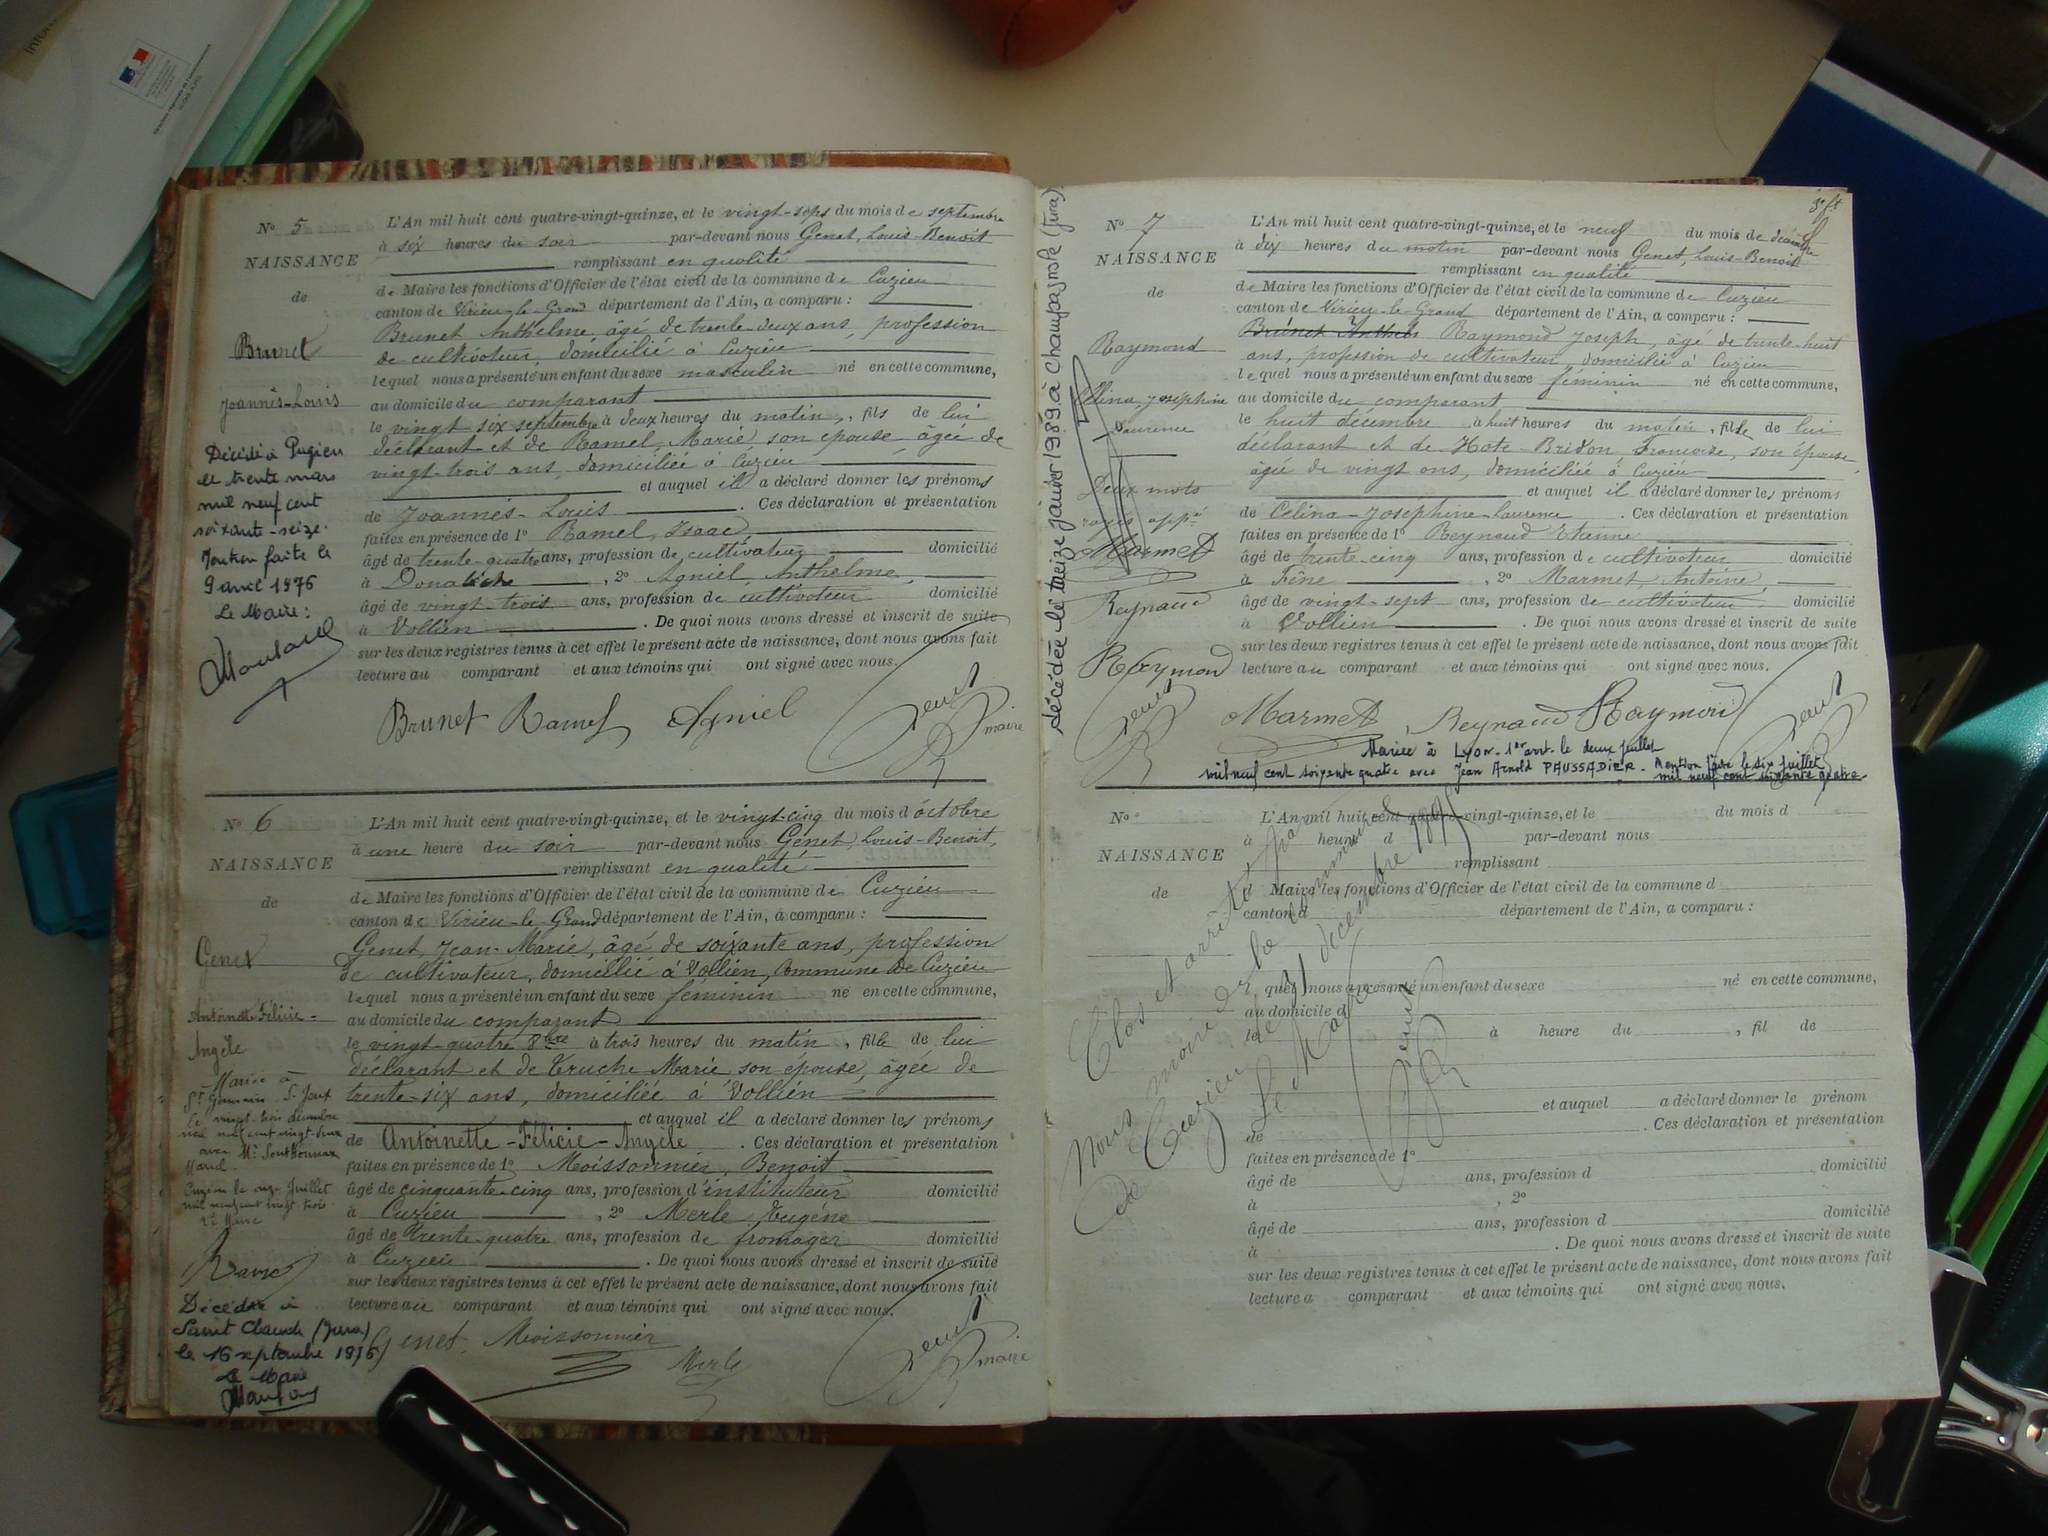 N° 5
NAISSANCE
de
Brunet
Joannès-Louis
Décédé à Pugieu
le trente mars
mil neuf cent
soixante-seize.
Mention faite le
9 avril 1976
Le Maire:
L'An mil huit cent quatre-vingt-quinze, et le vingt-sept du mois de septembre
à six heures du soir par-devant nous Genet, Louis-Benoit
remplissant en qualité
de Maire les fonctions d'Officier de l'état civil de la commune de Cuzieu
canton de Virieu-le-Grand département de l'Ain, a comparu :
Brunet Anthelme, âgé de trente-deux ans, profession
de cultivateur, domicilié à Cuzieu
lequel nous a présenté un enfant du sexe masculin né en cette commune,
au domicile du comparant
le vingt six septembre à deux heures du matin, fils de lui
déclarant et de Ramel Marie son épouse âgée de
vingt-trois ans, domiciliée à Cuzieu
et auquel il a déclaré donner les prénoms
de Joannès-Louis . Ces déclaration et présentation
faites en présence de 1° Ramel, Isaac,
âgé de trente-quatre ans, profession de cultivateur domicilié
à , 2° Agniel, Anthelme,
âgé de vingt-trois ans, profession de cultivateur domicilié
à Vollien . De quoi nous avons dressé et inscrit de suite
sur les deux registres tenus à cet effet le présent acte de naissance, dont nous avons fait
lecture au comparant et aux témoins qui ont signé avec nous.
Brunet Ramel Agniel Genet maire
N° 6
NAISSANCE
de
Genet
Antoinette Félicie-
Angèle
Mariée à
St Germain S. Joux
le vingt trois décembre
mil neuf cent vingt-deux
avec Mr
Marcel.
Cuzieu le onze Juillet
mil neuf cent vingt trois
Le Maire
Décédée à
Saint Claude (Jura)
le 16 septembre 1976
Le Maire
L'An mil huit cent quatre-vingt-quinze, et le vingt-cinq du mois d'octobre
à une heure du soir par-devant nous Genet, Louis-Benoit,
remplissant en qualité
de Maire les fonctions d'Officier de l'état civil de la commune de Cuzieu
canton de Virieu-le-Grand département de l'Ain, a comparu :
Genet, Jean-Marie, âgé de soixante ans, profession
de cultivateur, domicilié à Vollien, commune de Cuzieu
lequel nous a présenté un enfant du sexe féminin né en cette commune,
au domicile du comparant
le vingt-quatre 8bre à trois heures du matin, fille de lui
déclarant et de Truche Marie son épouse, âgée de
trente-six ans, domiciliée à Vollien
et auquel il a déclaré donner les prénoms
de Antoinette-Félicie-Angèle . Ces déclaration et présentation
faites en présence de 1° Moissonnier, Benoit
âgé de cinquante-cinq ans, profession d'instituteur domicilié
à Cuzieu , 2° Merle, Eugène
âgé de trente-quatre ans, profession de fromager domicilié
à Cuzieu . De quoi nous avons dressé et inscrit de suite
sur les deux registres tenus à cet effet le présent acte de naissance, dont nous avons fait
lecture au comparant et aux témoins qui ont signé avec nous.
Genet Moissonnier Merle Genet maire
décédée le treize janvier 1989 à Champagnole (Jura)
N° 7
NAISSANCE
de
Raymond
Célina, Joséphine
Laurence
Deux mots
rayés appé
Marmet
Reynaud
Raymond
Genet
L'An mil huit cent quatre-vingt-quinze, et le neuf du mois de décembre
à dix heures du matin par-devant nous Genet, Louis-Benoit
remplissant en qualité
de Maire les fonctions d'Officier de l'état civil de la commune de Cuzieu
canton de Virieu-le-Grand département de l'Ain, a comparu :
Brunet Anthel Raymond Joseph, âgé de trente-huit
ans, profession de cultivateur, domicilié à Cuzieu
lequel nous a présenté un enfant du sexe féminin né en cette commune,
au domicile du comparant
le huit décembre à huit heures du matin, fille de lui
déclarant et de Hote-Bridon Françoise, son épouse,
âgée de vingt ans, domiciliée à Cuzieu
et auquel il a déclaré donner les prénoms
de Célina-Joséphine-Laurence . Ces déclaration et présentation
faites en présence de 1° Reynaud Etienne
âgé de trente-cinq ans, profession de cultivateur domicilié
à , 2° Marmet, Antoine,
âgé de vingt-sept ans, profession de cultivateur domicilié
à Vollien . De quoi nous avons dressé et inscrit de suite
sur les deux registres tenus à cet effet le présent acte de naissance, dont nous avons fait
lecture au comparant et aux témoins qui ont signé avec nous.
Marmet Reynaud Raymond Genet
Mariée à Lyon-1er arrt. le deux juillet
mil neuf cent soixante quatre avec Jean Arnold PAUSSADIER. Mention faite le six juillet
mil neuf cent soixante quatre.
N°
NAISSANCE
de
L'An mil huit cent quatre-vingt-quinze, et le du mois d
à heure d par-devant nous
remplissant
d Maire les fonctions d'Officier de l'état civil de la commune d
canton d département de l'Ain, a comparu :
lequel nous a présenté un enfant du sexe né en cette commune,
au domicile d
le à heure du , fil de
et auquel a déclaré donner le prénom
de . Ces déclaration et présentation
faites en présence de 1°
âgé de ans, profession d domicilié
à , 2°
âgé de ans, profession d domicilié
à . De quoi nous avons dressé et inscrit de suite
sur les deux registres tenus à cet effet le présent acte de naissance, dont nous avons fait
lecture a comparant et aux témoins qui ont signé avec nous.
Clos et arrêté par
Nous maire de la commune
de Cuzieu le 31 décembre 1895
Le Maire
Genet